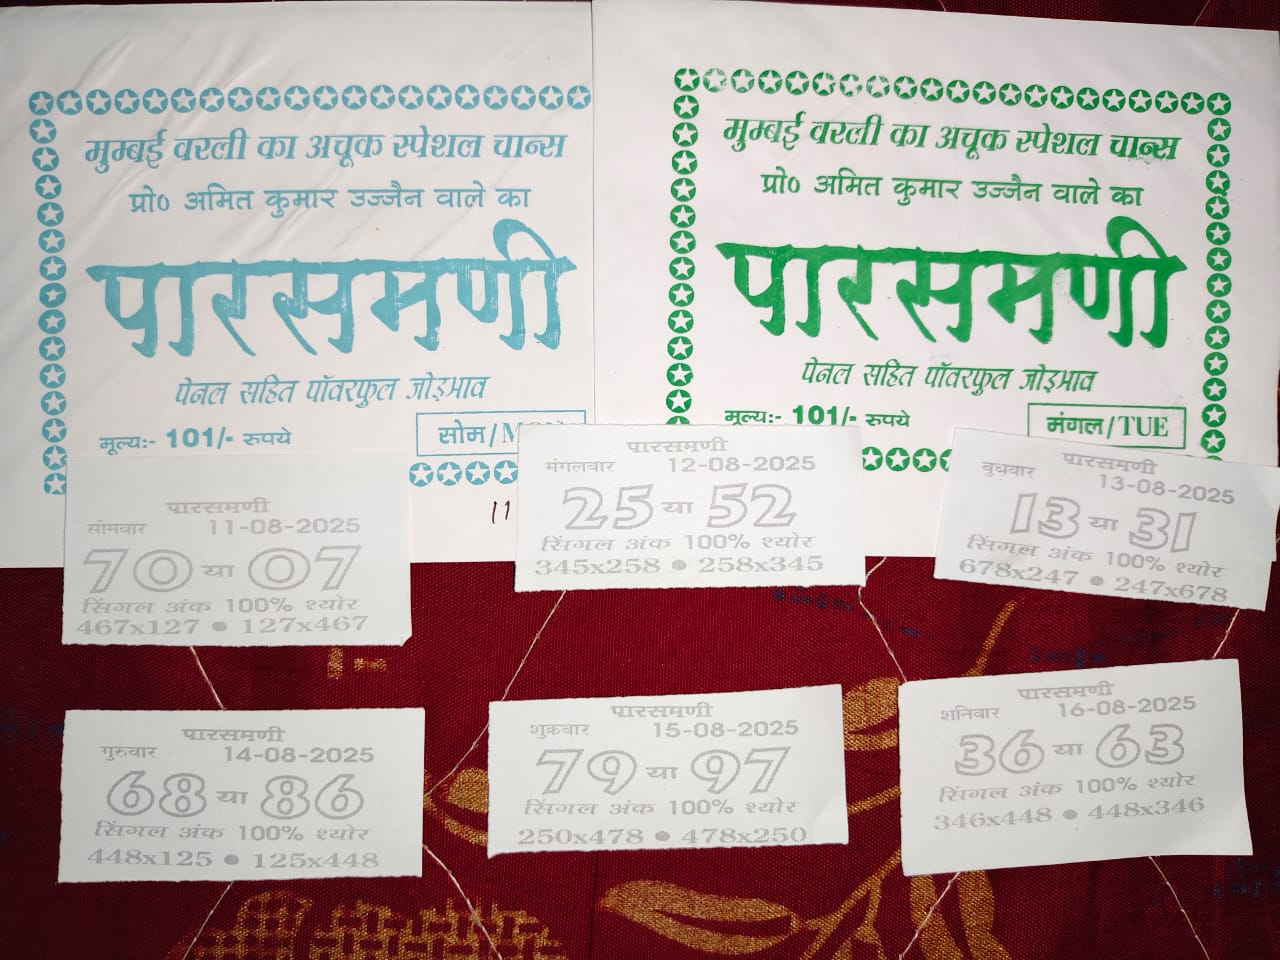 मुम्बई वरली का अचूक स्पेशल चान्स
प्रो० अमित कुमार उज्जैन वाले का
पारसमणी
पेनल सहित पॉवरफुल जोड़भाव
मूल्यः- 101/- रुपये
सोम/M
11
मुम्बई वरली का अचूक स्पेशल चान्स
प्रो० अमित कुमार उज्जैन वाले का
पारसमणी
पेनल सहित पॉवरफुल जोड़भाव
मूल्यः- 101/- रुपये
मंगल/TUE
पारसमणी
सोमवार 11-08-2025
70 या 07
सिंगल अंक 100% श्योर
467x127 ● 127x467
पारसमणी
मंगलवार 12-08-2025
25 या 52
सिंगल अंक 100% श्योर
345x258 ● 258x345
पारसमणी
बुधवार 13-08-2025
13 या 31
सिंगल अंक 100% श्योर
678x247 ● 247x678
पारसमणी
गुरुवार 14-08-2025
68 या 86
सिंगल अंक 100% श्योर
448x125 ● 125x448
पारसमणी
शुक्रवार 15-08-2025
79 या 97
सिंगल अंक 100% श्योर
250x478 ● 478x250
पारसमणी
शनिवार 16-08-2025
36 या 63
सिंगल अंक 100% श्योर
346x448 ● 448x346